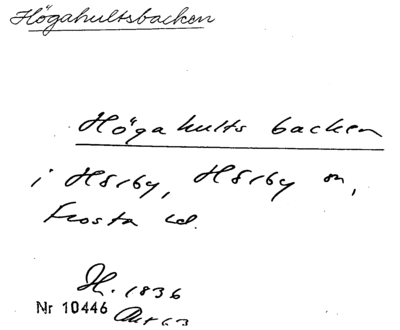 Högahultsbacken
Högahults backen
i Hörby, Hörby sn,
Frosta hd.
H. 1836
Nr 10446